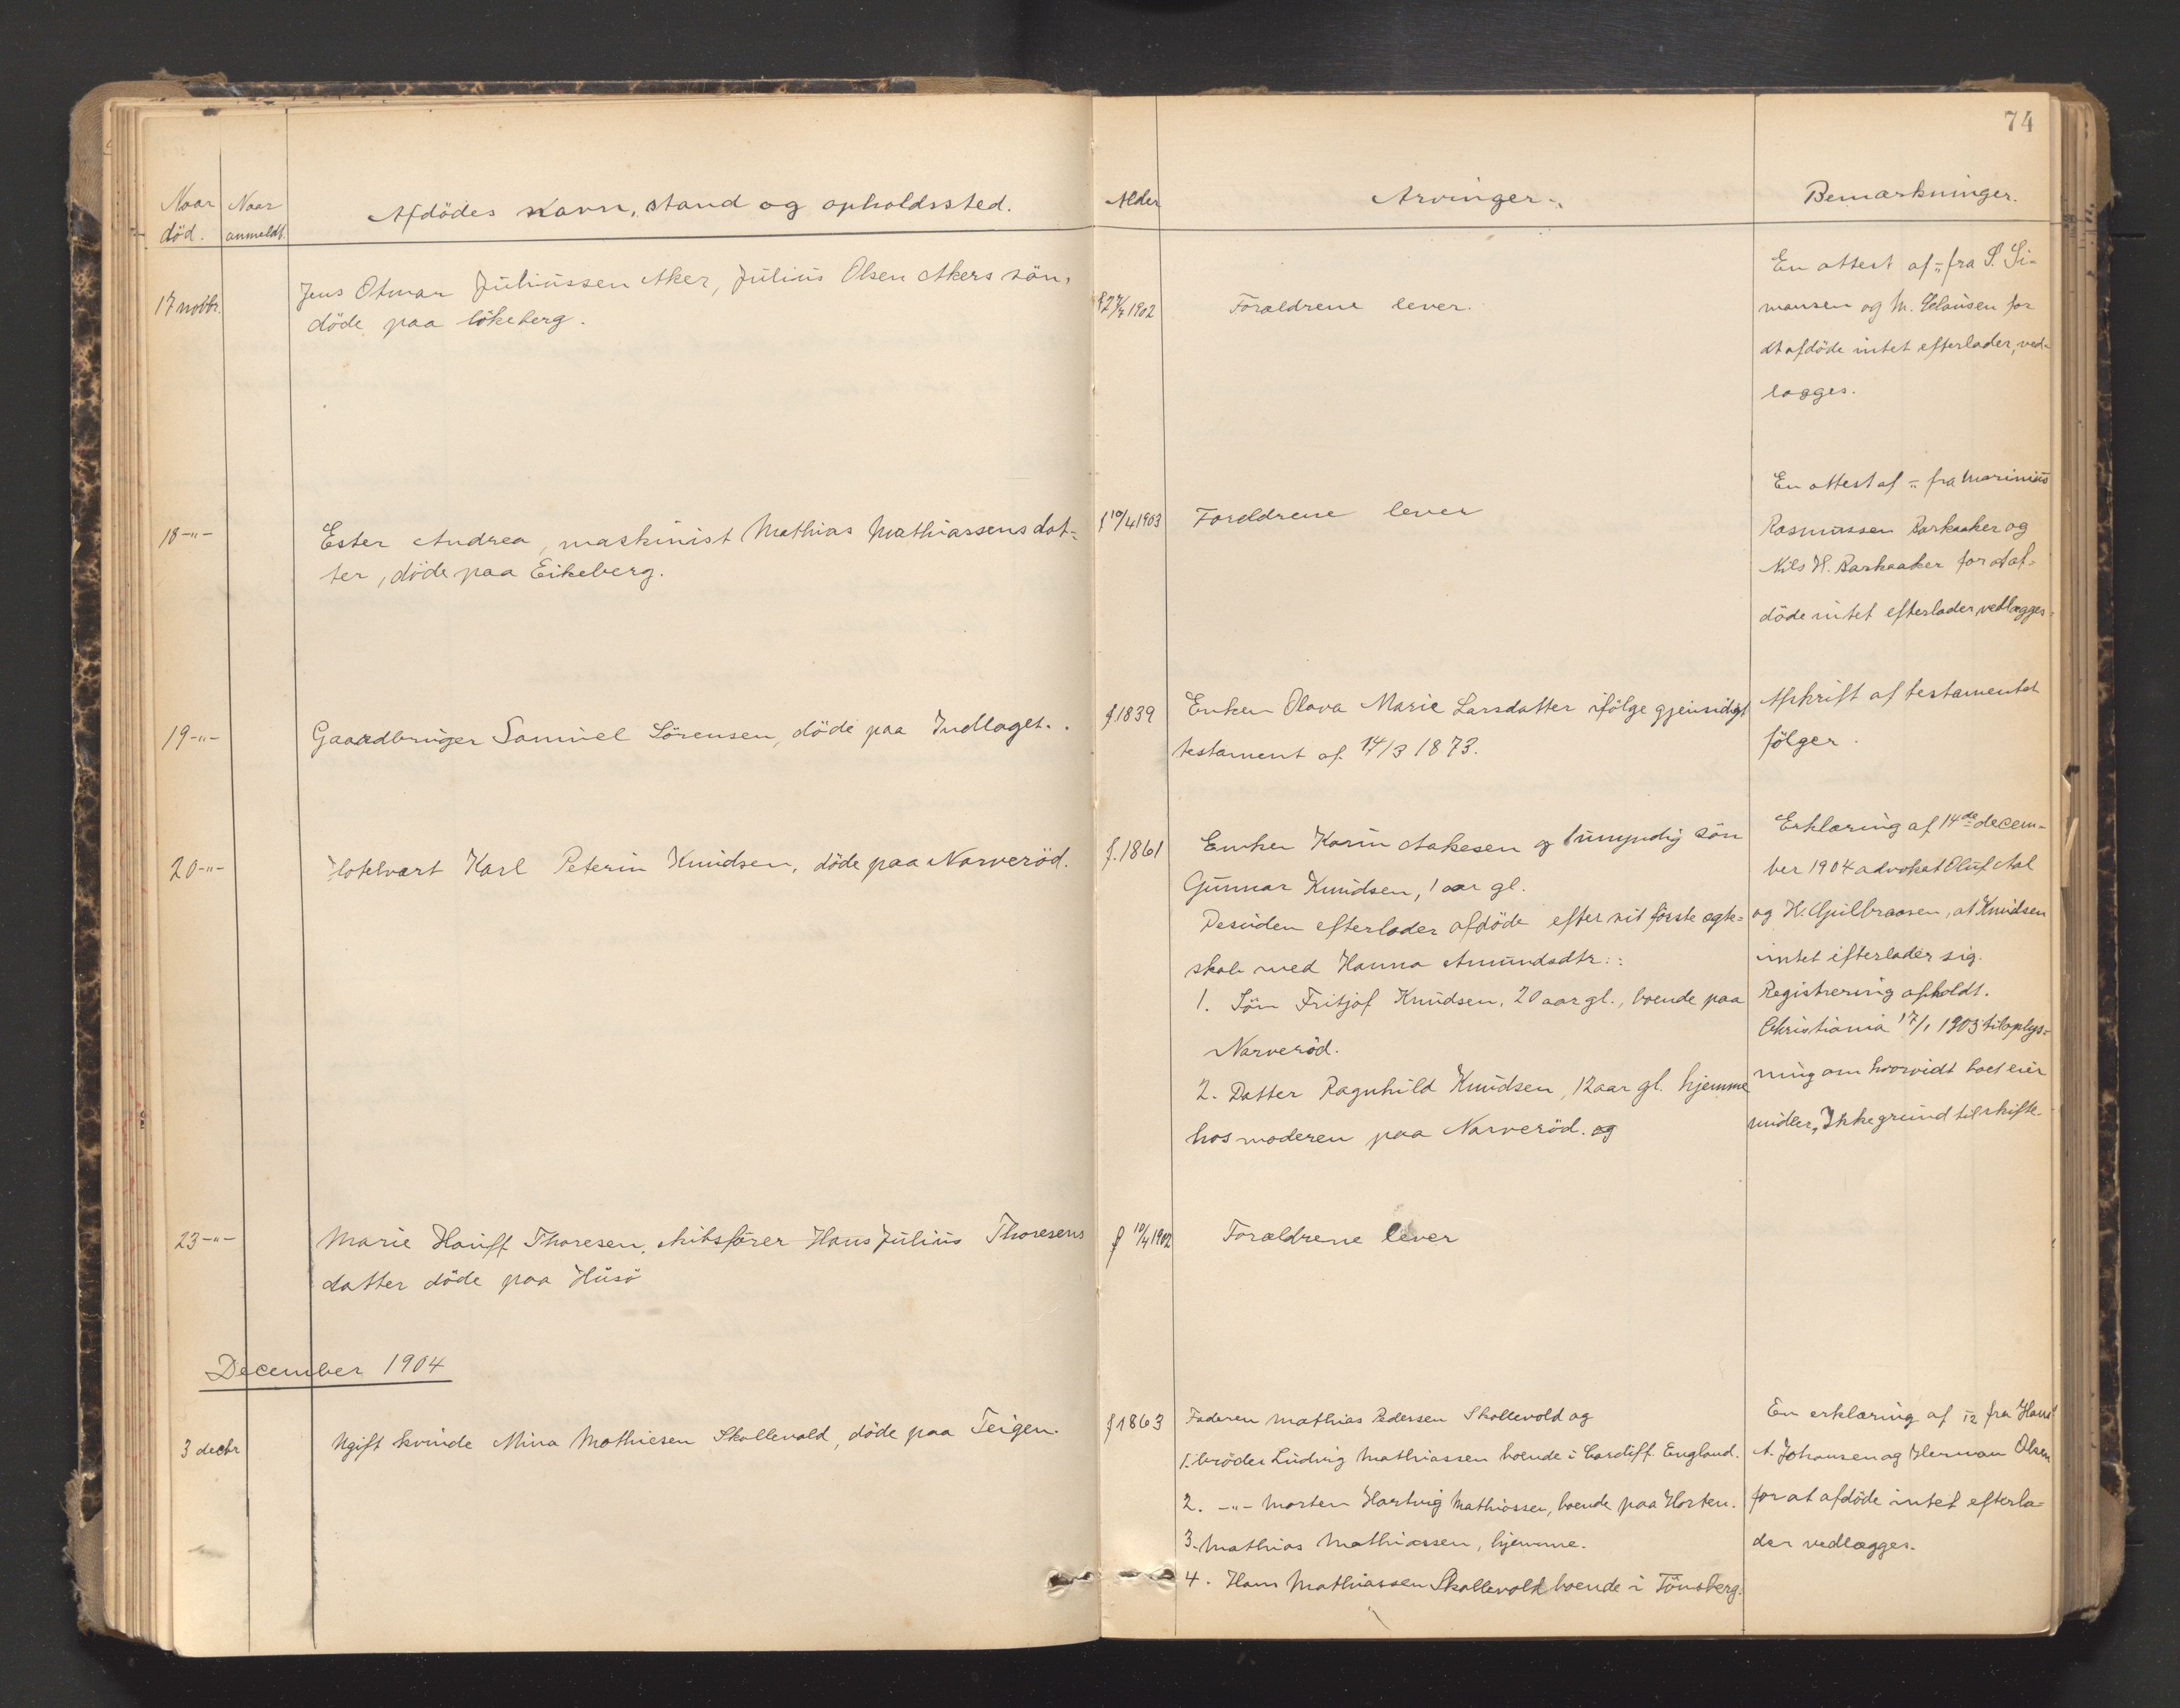 74
Naar død. Naar anmeldt. Afdödes navn, stand og opholdssted. Alder Arvinger. Bemærkninger.
17 novbr.
Jens Otmar Juliussen Aker, Julius Olsen Akers sön,
döde paa Lökeberg.
1902
Forældrene lever.
En attest af -"- fra S. Si-
monsen og M. Clausen for
at afdöde intet efterlader, ved-
lægges.
18 -"-
Ester Andrea, maskinist Mathias Mathiassens dat-
ter, döde paa Eikeberg.
f 10/4 1903
Forældrene lever
En attest af -"- fra Marinius
Rasmussen Barkaaker og
Nils H. Barkaaker for at af-
döde intet efterlader, vedlægges.
19 -"-
Gaardbruger Samuel Sörensen, döde paa Indlaget.
f. 1839
Enken Olava Marie Larsdatter ifölge gjensidigt
testament af 14/3 1873.
Afskrift af testamentet
fölger.
20 -"-
Hotelvært Karl Peterin Knudsen, döde paa Narveröd.
f. 1861
Enken Karin Aakesen og 1 umyndig sön
Gunnar Knudsen, 1 aar gl.
Desuden efterlader afdöde efter sit förste ægte-
skab med Hanna Amundsdtr.:
1. Sön Fritjof Knudsen, 20 aar gl., boende paa
Narveröd.
2. Datter Ragnhild Knudsen, 12 aar gl. hjemme
hos moderen paa Narveröd. og
Erklæring af 14de decem-
ber 1904 advokat Oluf Aal
og H. Gulbraasen, at Knudsen
intet efterlader sig.
Registrering afholdt.
Christiania 17/1 1905 til oplys-
ning om hvorvidt boet eier
midler, Ikke grund til skifte.
23 -"-
Marie Hauff Thoresen, Arbsfører Hans Julius Thoresens
datter döde paa Husö
f 10/4 1902
Forældrene lever
December 1904
3 decbr
Ugift kvinde Mina Mathiesen Skallevold, döde paa Teigen.
f 1863
Faderen Mathias Pedersen Skallevold og
1. bröder Ludvig Mathiassen boende i Cardiff England.
2. -"- Morten Hartvig Mathiassen, boende paa Horten.
3. Mathias Mathiassen, hjemme.
4. Hans Mathiassen Skallevold boende i Tönsberg.
En erklæring af fra Hans
A. Johansen og Herman Olsen
for at afdöde intet efterla-
der vedlægges.